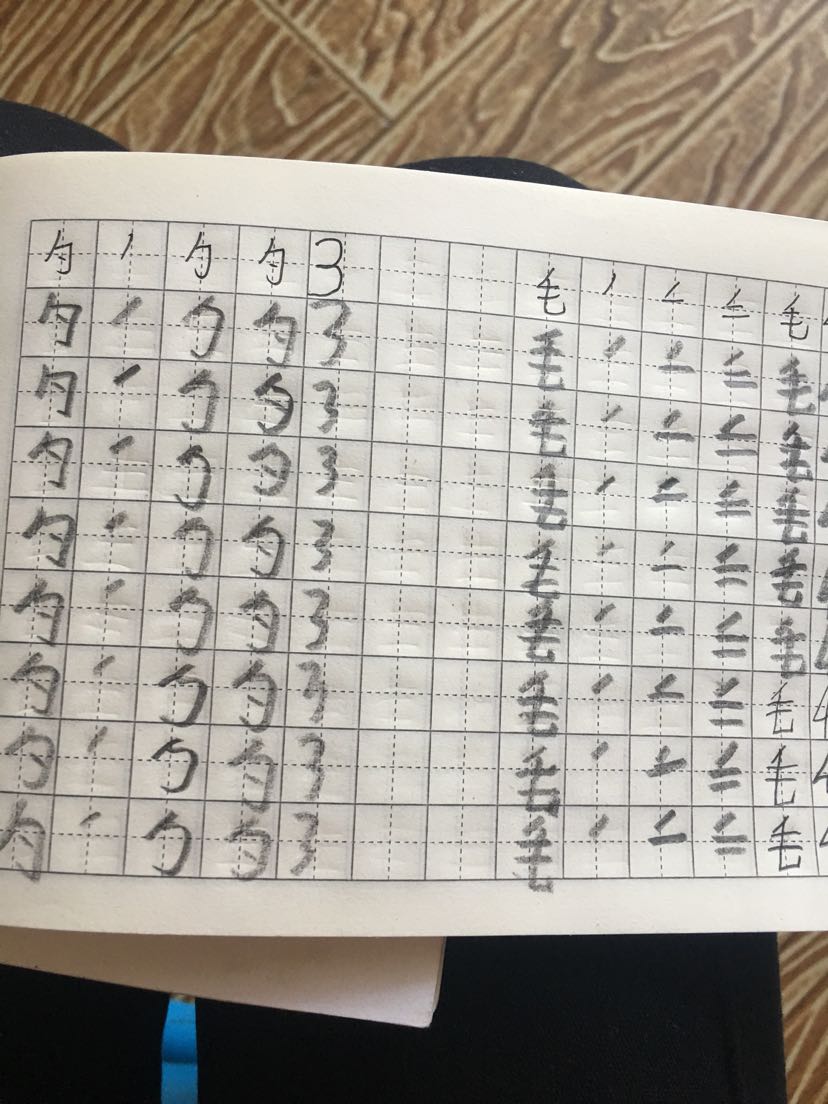 勺 丿 勹 勺 3 毛 丿 二 三 毛
勺 丿 勹 勺 3 毛 丿 二 三 毛
勺 丿 勹 勺 3 毛 丿 二 三 毛
勺 丿 勹 勺 3 毛 丿 二 三 毛
勺 丿 勹 勺 3 毛 丿 二 三 毛
勺 丿 勹 勺 3 毛 丿 二 三 毛
勺 丿 勹 勺 3 毛 丿 二 三 毛 4
勺 丿 勹 勺 3 毛 丿 二 三 毛 4
勺 丿 勹 勺 3 毛 丿 二 三 毛 4